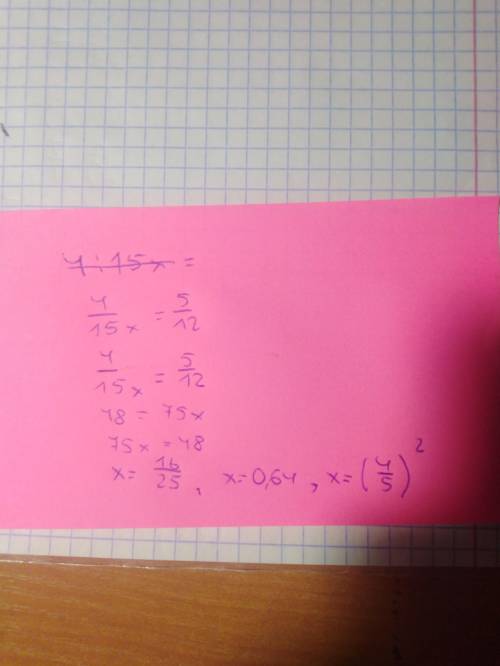 4:15x =
4/15x = 5/12
4/15x = 5/12
48 = 75x
75x = 48
x = 16/25, x = 0,64, x = (4/5)²